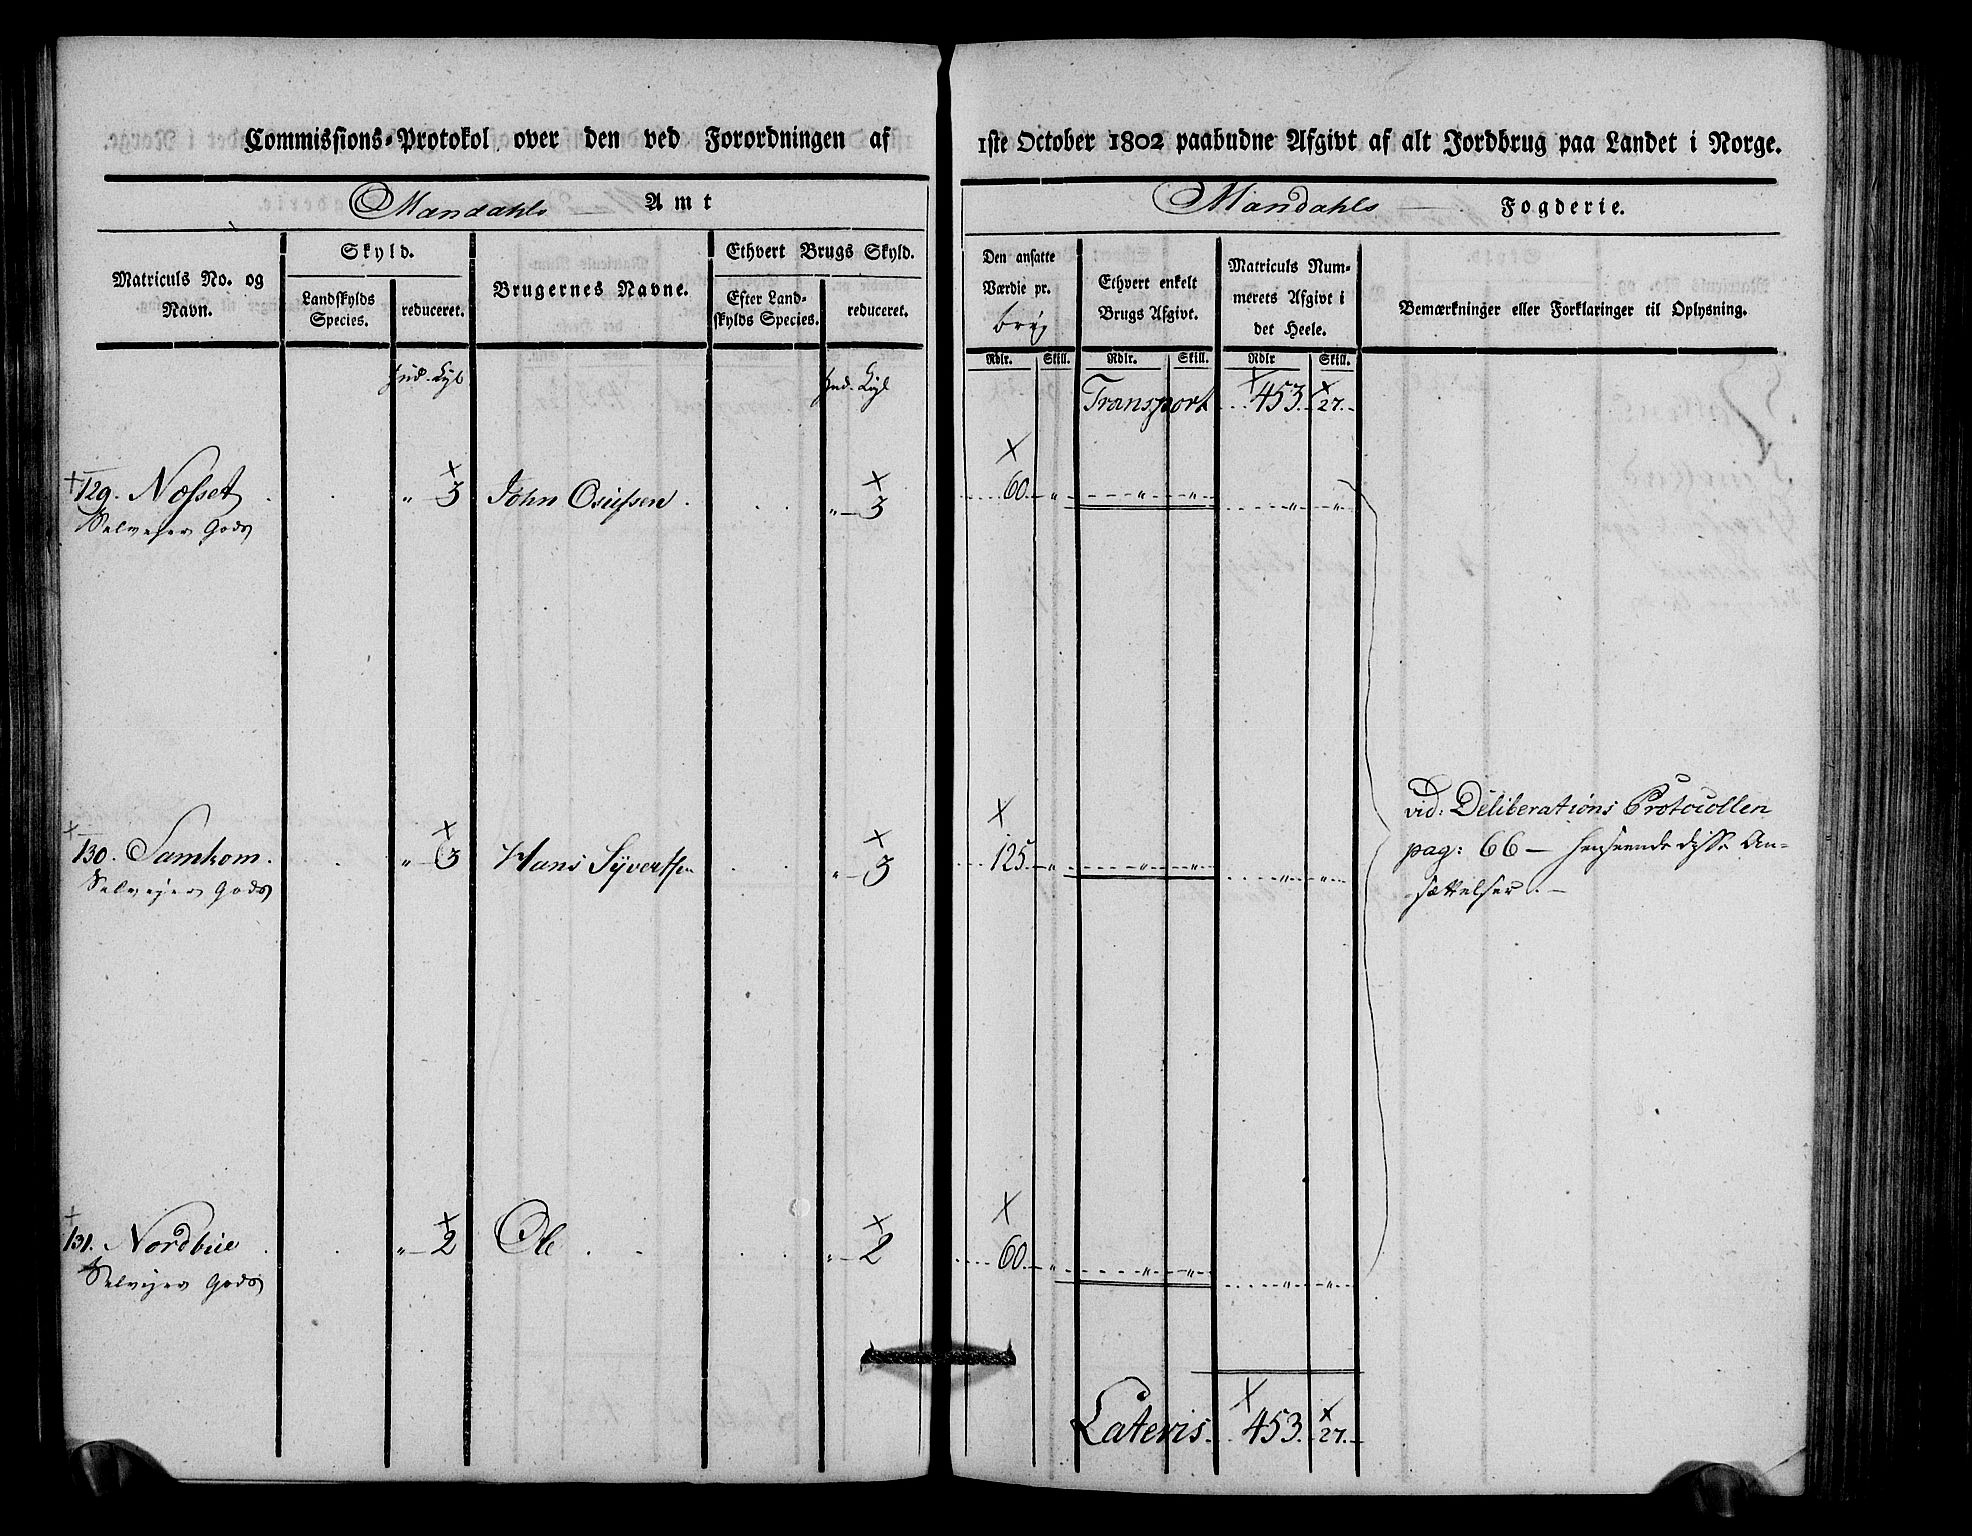 Commissions-Protokol over den ved Forordningen af 1ste October 1802 paabudne Afgivt af alt Jordbrug paa Landet i Norge.
Mandahls Amt
Mandahls Fogderie.
Matriculs No. og Navn.
Skyld.
Landskylds Species.
reduceret.
Brugernes Navne.
Ethvert Brugs Skyld.
Efter Landskylds Species.
reduceret.
Den ansatte Værdie pr.
Ethvert enkelt Brugs Afgivt.
Matriculs Nummerets Afgivt i det Heele.
Bemærkninger eller Forklaringer til Oplysning.
Rdlr. Skill. Rdlr. Skill. Rdlr Skill.
Transport 453. 27.
129. Nosset " 3 John " 3 60 " " " " "
Selvejer Gods
130. Samkom. " 3 Hans Syvertsen " 3 125 " " " " "
Selvejer Gods
vid: Deliberations Protocollen
pag: 66 — henseende disse An-
sættelser. —
131. Nordbue " 2 Ole " 2 60 " " " " "
Selvejer Gods
Lateris 453. 27.